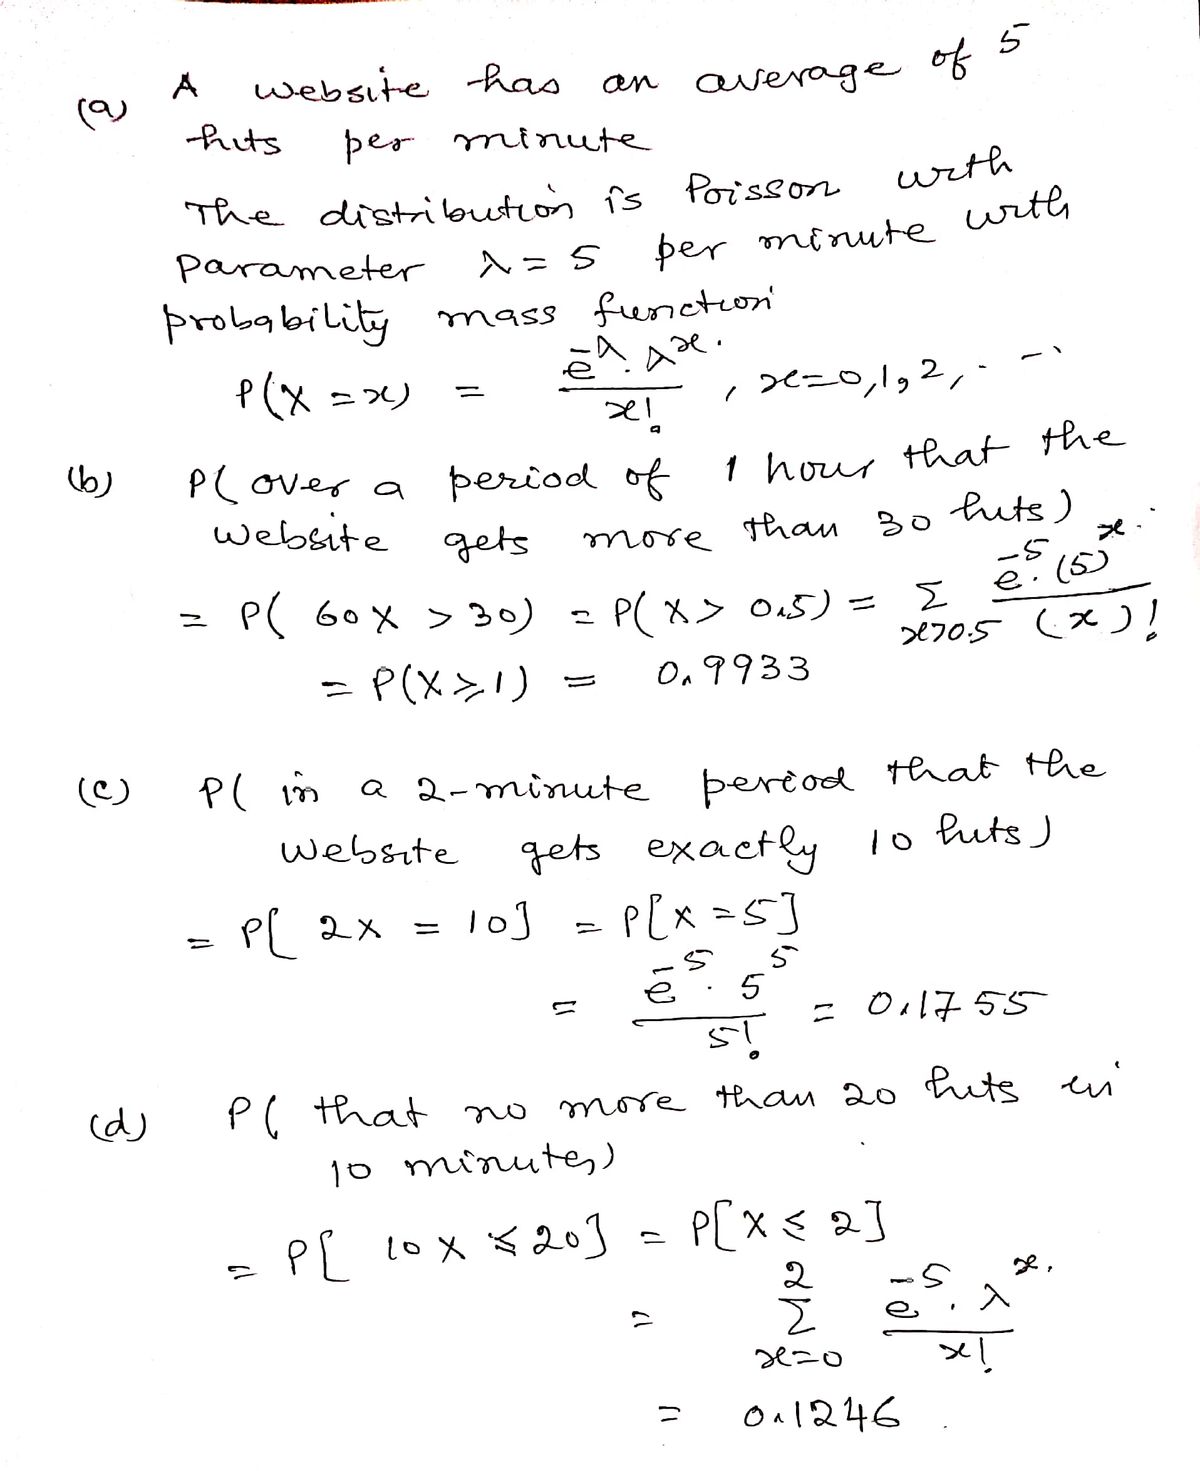 (a) A website has an average of 5
hits per minute
The distribution is Poisson with
parameter λ = 5 per minute with
probability mass function
P(X = x) = e^-λ . λ^x / x! , x=0,1,2, . - -
(b) P( over a period of 1 hour that the
website gets more than 30 hits)
= P( 60X > 30) = P( X > 0.5) = Σ x>0.5 e^-5 . (5)^x / (x)!
= P(X ⩾ 1) = 0.9933
(c) P( in a 2-minute period that the
website gets exactly 10 hits)
= P[ 2X = 10] = P[X = 5]
= e^-5 . 5^5 / 5! = 0.1755
(d) P( that no more than 20 hits in
10 minutes)
= P[ 10X ≤ 20] = P[X ≤ 2]
= Σ x=0 2 e^-5 . λ^x / x!
= 0.1246